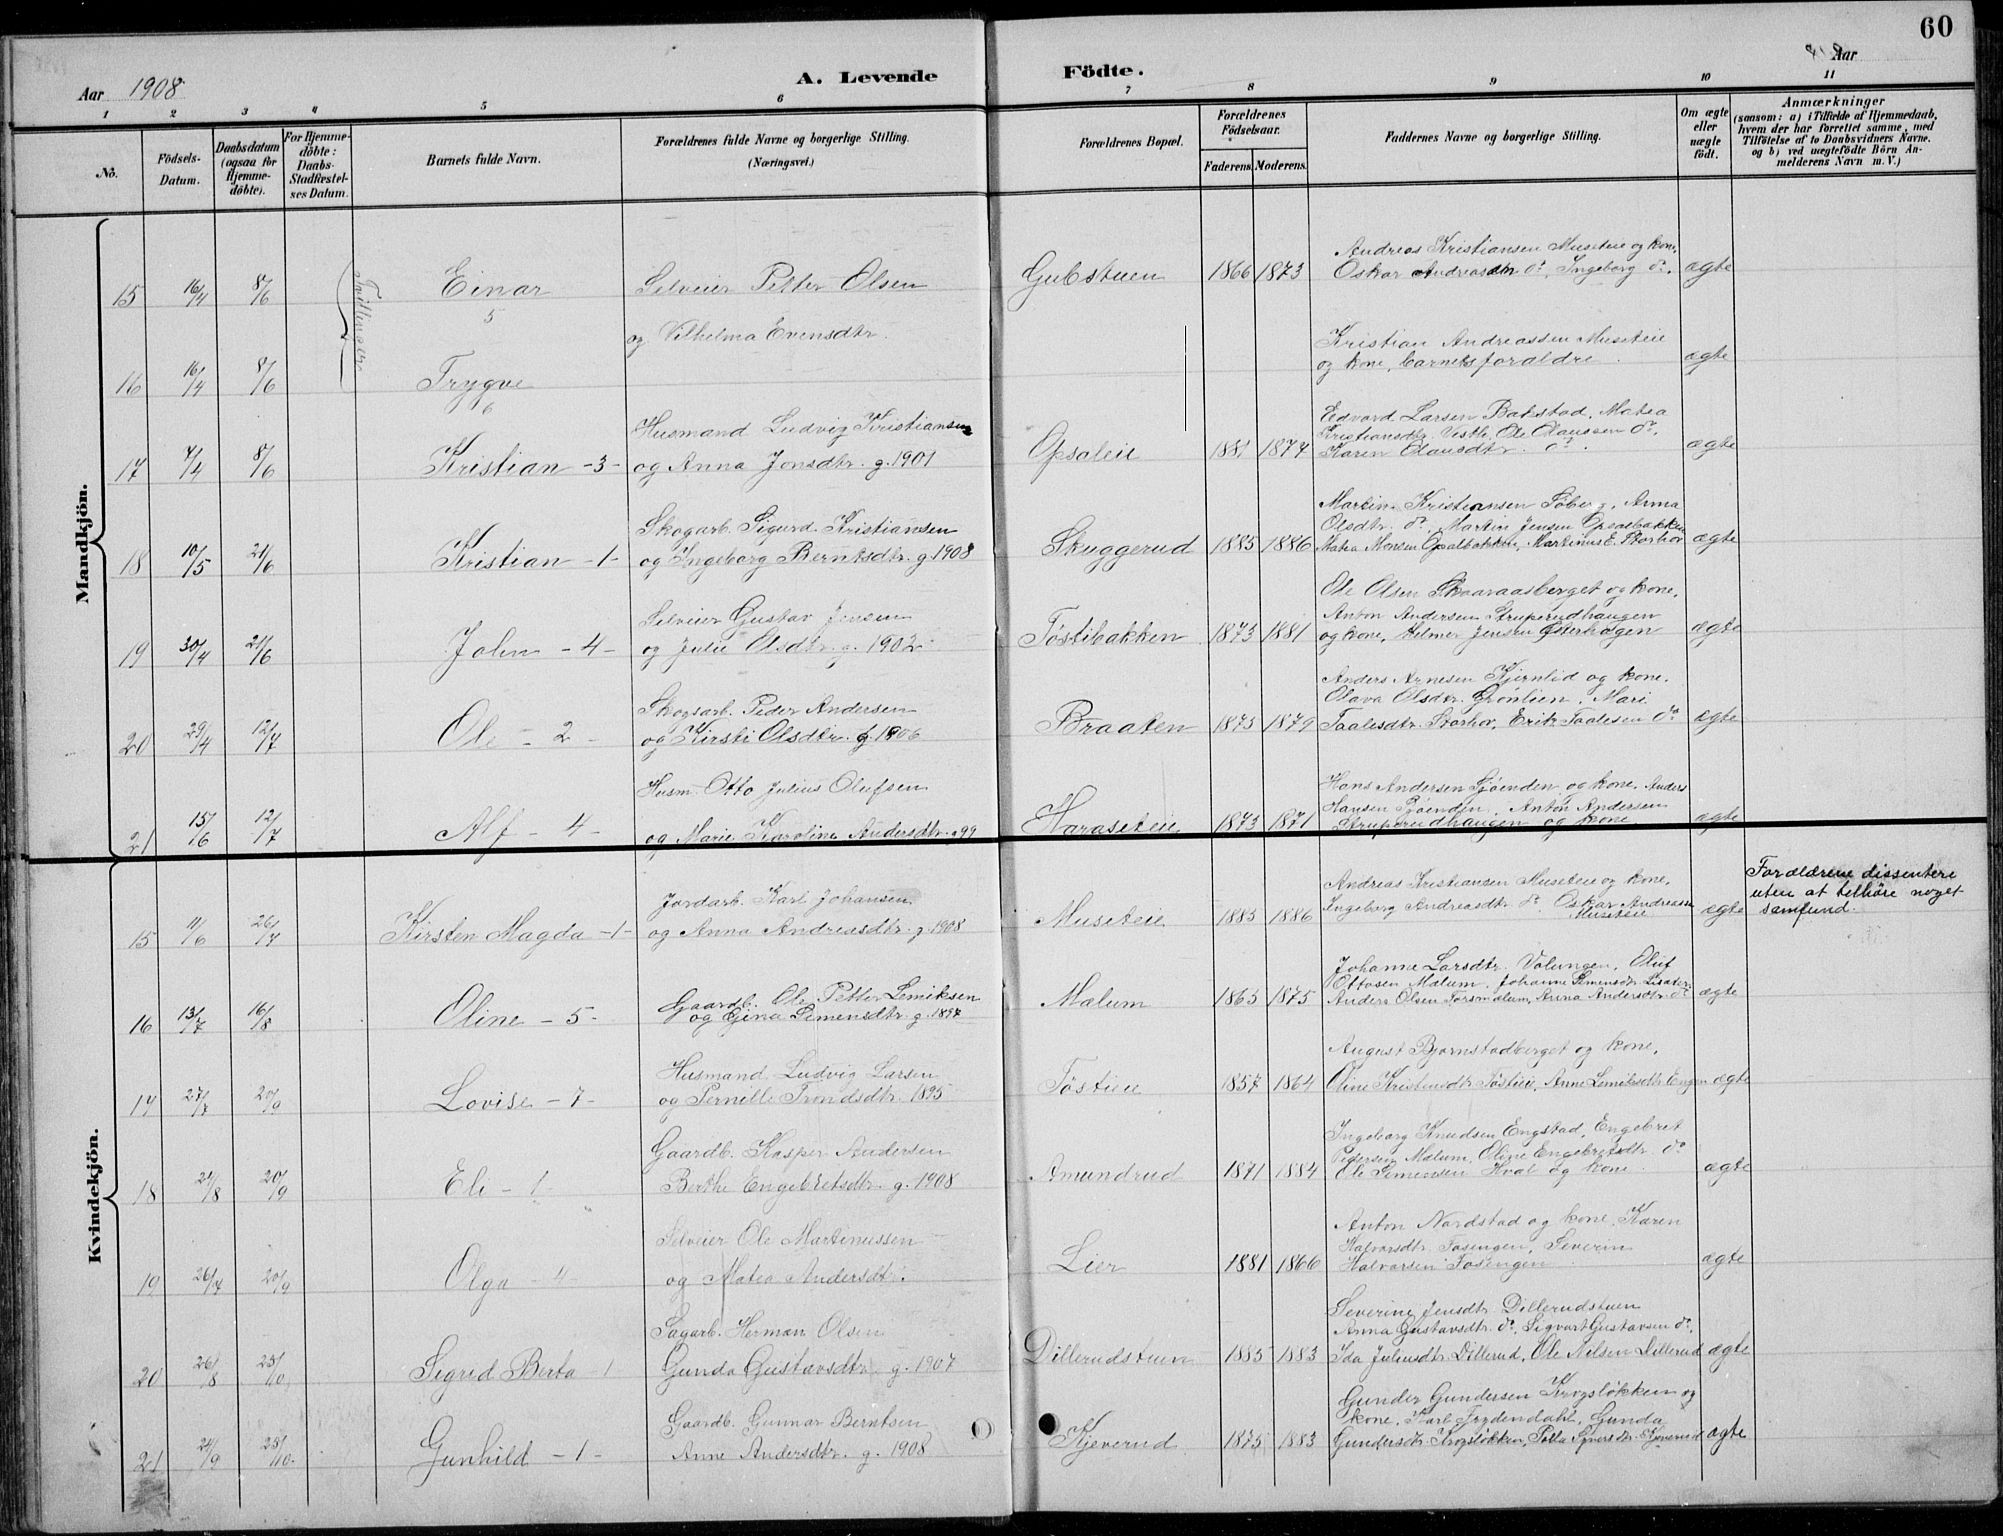 60
Aar 1908
A. Levende Födte.
Aar
1 2 3 4 5 6 7 8 9 10 11
No.
Födsels-Datum.
Daabsdatum (ogsaa for Hjemme-döbte).
For Hjemme-döbte: Daabs-Stadfæstel-ses Datum.
Barnets fulde Navn.
Forældrenes fulde Navne og borgerlige Stilling. (Næringsvei.)
Forældrenes Bopæl.
Forældrenes Födselsaar.
Faderens. Moderens.
Faddernes Navne og borgerlige Stilling.
Om ægte eller uægte födt.
Anmærkninger
(saasom: a) i Tilfælde af Hjemmedaab, hvem der har forrettet samme, med Tilföielse af to Daabsvidners Navne. og b) ved uægtefödte Börn An-melderens Navn m. V.)
Mandkjön.
Tvillinger
15 16/4 8/6 Einar 5 Selveier Petter Olsen og Vilhelma Evensdtr. Gubstuen 1866 1873 Andreas Kristiansen Museteie og kone, Oskar Andreassen do, Ingeborg do. ægte
16 16/4 8/6 Trygve 6 Kristian Andreassen Museteie og kone, barnets forældre. ægte
17 7/4 8/6 Kristian - 3 - Husmand Ludvig Kristiansen og Anna Jonsdtr. g. 1901 Opsaleie 1881 1877 Edvard Larsen Bakstad, Matea Kristiansdtr. Vestb. Ole Olaussen do, Karen Olausdtr. do. ægte
18 10/5 21/6 Kristian - 1 - Skogarb. Sigurd Kristiansen og Ingeborg Berntsdtr. g. 1908 Skuggerud 1885 1886 Martin Kristiansen Soberg, Anna Olsdtr. do. Martin Jensen Opsalbakken Matea Monsen Opsalbakken, Martinus E. Storhov ægte
19 30/4 21/6 John - 4 - Selveier Gustav Jensen og Julie Olsdtr. g. 1902 Töstibakken 1873 1881 Ole Olsen Skaaraasberget og kone, Anton Andersen Struperudhaugen og kone, Helmer Jensen Österhagen ægte
20 29/4 12/7 Ole - 2 - Skogsarb. Peder Andersen og Kirsti Olsdtr. g. 1906 Braaten 1875 1879 Anders Arnesen Kjernlid og kone. Olava Olsdtr. Grönlien. Mari Taalesdtr. Storhov, Erik Taalesen do ægte
21 15/6 12/7 Alf - 4 - Husm. Otto Julius Olufsen og Marie Karoline Andersdtr. g. 99 Haraseteie 1873 1871 Hans Andersen Sjöenden og kone. Anders Hansen Sjöenden, Anton Andersen Struperudhaugen og kone ægte
Kvindekjön.
15 11/6 26/7 Kirsten Magda - 1 - Jordarb. Karl Johansen og Anna Andreasdtr. g. 1908 Museteie 1883 1886 Andreas Kristiansen Museteie og kone, Ingeborg Andreasdtr. do. Oskar Andreassen Museteie ægte Forældrene dissentere uten at tilhöre noget samfund.
16 13/7 16/8 Oline - 5 - Gaardb. Ole Petter Lemiksen og Gina Simensdtr. g. 1897 Malum 1865 1875 Johanne Larsdtr. Volungen, Oluf Ottosen Malum, Johanne Simensdtr. Anders Olsen Torsmalum, Anna Andersdtr. do ægte
17 27/7 20/9 Lovise - 7 - Husmand Ludvig Larsen og Pernille Trondsdtr. 1895 Töstieie 1857 1864 August Bjørnstadberget og kone, Oline Kristensdtr. Töstieie, Anne Lemiksdtr. Engen ægte
18 21/8 20/9 Eli - 1 - Gaardb. Kasper Andersen Berthe Engebretsdtr. g. 1908 Amundrud 1871 1884 Ingeborg Knudsen Engstad, Engebret Pedersen Malum, Oline Engebretsdtr. do Ole Simensen Hval og kone ægte
19 26/7 20/9 Olga - 4 - Selveier Ole Martinussen og Matea Andersdtr. Lier 1881 1866 Anton Nordstad og kone, Karen Halvorsdtr. Fosengen, Severin Halvorsen Fosengen ægte
20 26/8 25/10 Sigrid Berta - 1 Sagarb. Herman Olsen Gunda Gustavsdtr. g. 1907 Dillerudstuen 1885 1883 Severine Jensdtr. Dillerudstuen Anna Gustavsdtr. do, Sigvart Gustavsen do, Ida Juliusdtr. Dillerud, Ole Nilsen Dillerud ægte
21 24/9 25/10 Gunhild - 1 - Gaardb. Gunnar Berntsen Anne Andersdtr. g. 1908 Kjeverud 1875 1883 Gunder Gundersen Krogslökken og kone, Karl Frydendahl, Gunda Gundersdtr. Krogslökken, Kjeverud ægte